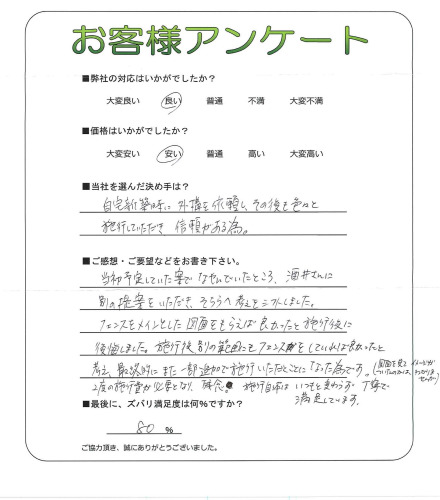 お客様アンケート
■弊社の対応はいかがでしたか？
大変良い 良い 普通 不満 大変不満
■価格はいかがでしたか？
大変安い 安い 普通 高い 大変高い
■当社を選んだ決め手は？
自宅新築時に外構を依頼し、その後も色々と
施行していただき、信頼がある為。
■ご感想・ご要望などをお書き下さい。
当初予定していた案でなやんでいたところ、酒井さんに
別の提案をいただき、そちらへ考えをシフトしました。
フェンスをメインとした図面をもらえば良かったと施行後に
後悔しました。施行後、別の範囲もフェンスをしていれば良かったと
考え、最終的にまた一部追加で施行いただくことになった為です。
(図面を見てイメージが
2度の施行費が必要となり、残念。施行自体はいつもと変わらず丁寧で
満足しています。
■最後に、ズバリ満足度は何％ですか？
80 %
ご協力頂き、誠にありがとうございました。